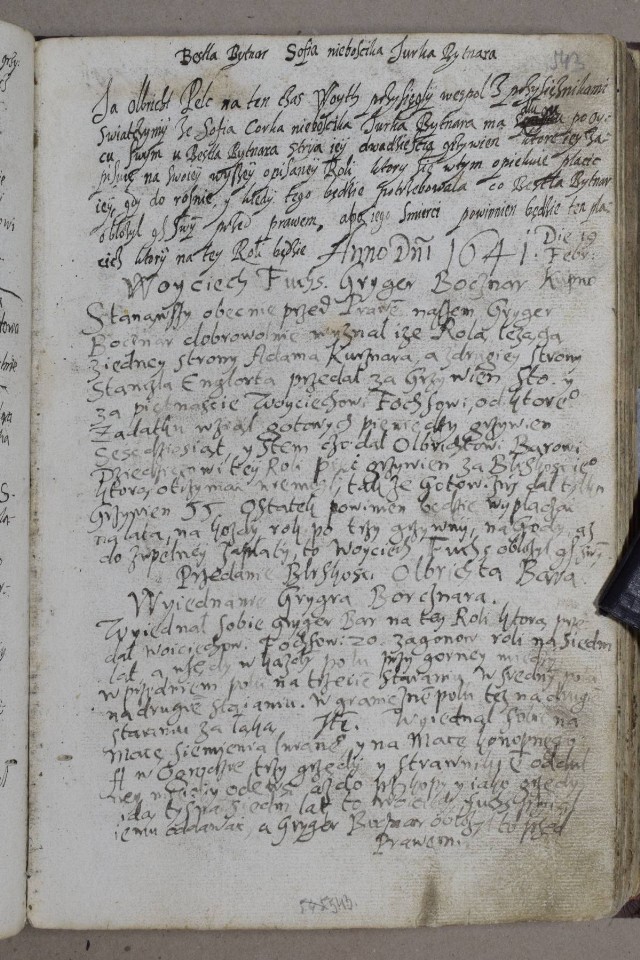 543
Bestla Bytnar Sofia nieboscika Jurka Bytnara
Ja Olbricht Pelc na ten czas Woyth przysięgły wespol z przysieznikami
Swiatczymy ze Sofia Corka nieboscika Jurka Bytnara ma po oy:
cu swym u Bestla Bytnara stryia iey dwadziescia grzywien ktore iey za
pisuie na swoiey wyssey opisaney Roli, ktory się w tym opiekuie placic
iey, gdy do rosnie, y kiedy tego będzie potrzebowala co Bestla Bytnar
oblozyl gß swy przed prawem, a po iego smierci powinien będzie ten pla,
cich ktory na tey Roli będzie Anno Dni 1641. Die 19 Febr:
Woyciech Fuchs. Gryger Bocznar Kupno
Stanąwszy obecnie przed Prawe nassem Gryger
Bocznar dobrowolnie wyznal isze Rola, lezącą
z iedney strony Adama Kusznara, a z drugiey strony
Stanczla Englorta przedal za Grzywien sto. y
za piętnascie Woyciechowi Fochsowi, od ktore°
Zadatku wzial gotowych pieniedzy grzywien
Sesćdziesiąt, y Item czo dal Olbrichtowi Barowi
Dziedzicowi tey Roli pięć grzywien za Bliskoscie°
ktorą otrzymac niemogl, takze gotowizny dal tylko
Grzywien 55. Ostatek powinien będzie wyplaczac
na lata, na kozdy rok po trzy grzywny, na gody, aż
do zupelney zaplaty, to Woyciech Fuchs oblozyl gß swy
Przedanie Bliskosci. Olbrichta Bara.
Wyiednanie Grygra Borcznara.
Wyiednal sobie gryger Bar na tey Roli ktorą prze
dal Woiciechowi Fochsowi: 20. zagonow roli na Siedm
lat, a wszędy w kazdy polu przy gorney miedzy
w przedniem polu na trzecie staraniu, w średny polu
na drugie staianiu. w granicznem polu tez na drugi
staraniu za laką, Ite. Wyiednal sobie na
Macę Siemienia lniane° y na Macę konopnego
It w Ogrodzie trzy grzędy y
az do przykopy y iako grzędy
idą tysz na siedm lat to Woiciech Fuchs
iemu oddawac, a Gryger Bocznar oblozyl to przed
Prawem.
543.